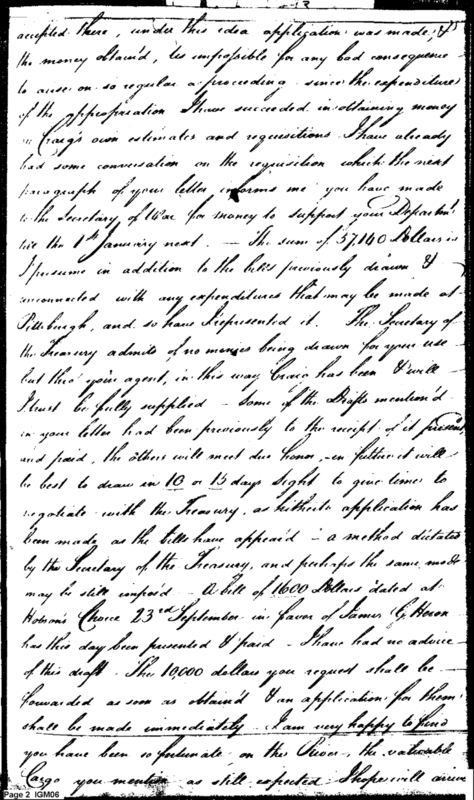 accepted there, under this idea application was made, &
the money obtain'd, tis impossible for any bad consequence
to arise on so regular a proceeding since the expenditure
of the appropriation I have succeeded in obtaining money
on Craig's own estimates and requisitions I have already
had some conversation on the requisition which the next
paragraph of your letter informs me you have made
to the Secretary of War for money to support your Departmt
till the 1st January next. — The sum of 37,140 Dollars is
I presume in addition to the bills previously drawn &
unconnected with any expenditures that may be made at
Pittsburgh, and so have I represented it. The Secretary of
the Treasury admits of no monies being drawn for your use
but thro' your agent, in this way Craig has been & will
I trust be fully supplied — Some of the Drafts mention'd
in your letter had been previously to the receipt of it present
and paid, the others will meet due honor, in future it will
be best to draw in 10 or 15 days Sight to give time to
negotiate with the Treasury, as hitherto application has
been made as the bills have appear'd — a method dictated
by the Secretary of the Treasury, and perhaps the same mode
may be still impos'd — A bill of 1600 Dollars dated at
Hobson's Choice 23rd September in favor of James G. Heron
has this day been presented & paid — I have had no advice
of this draft. The 10,000 dollars you request shall be
forwarded as soon as obtain'd & an application for them
shall be made immediately. I am very happy to find
you have been so fortunate on the River, the valuable
Cargo you mention as still expected I hope will arrive
Page 2 IGM06